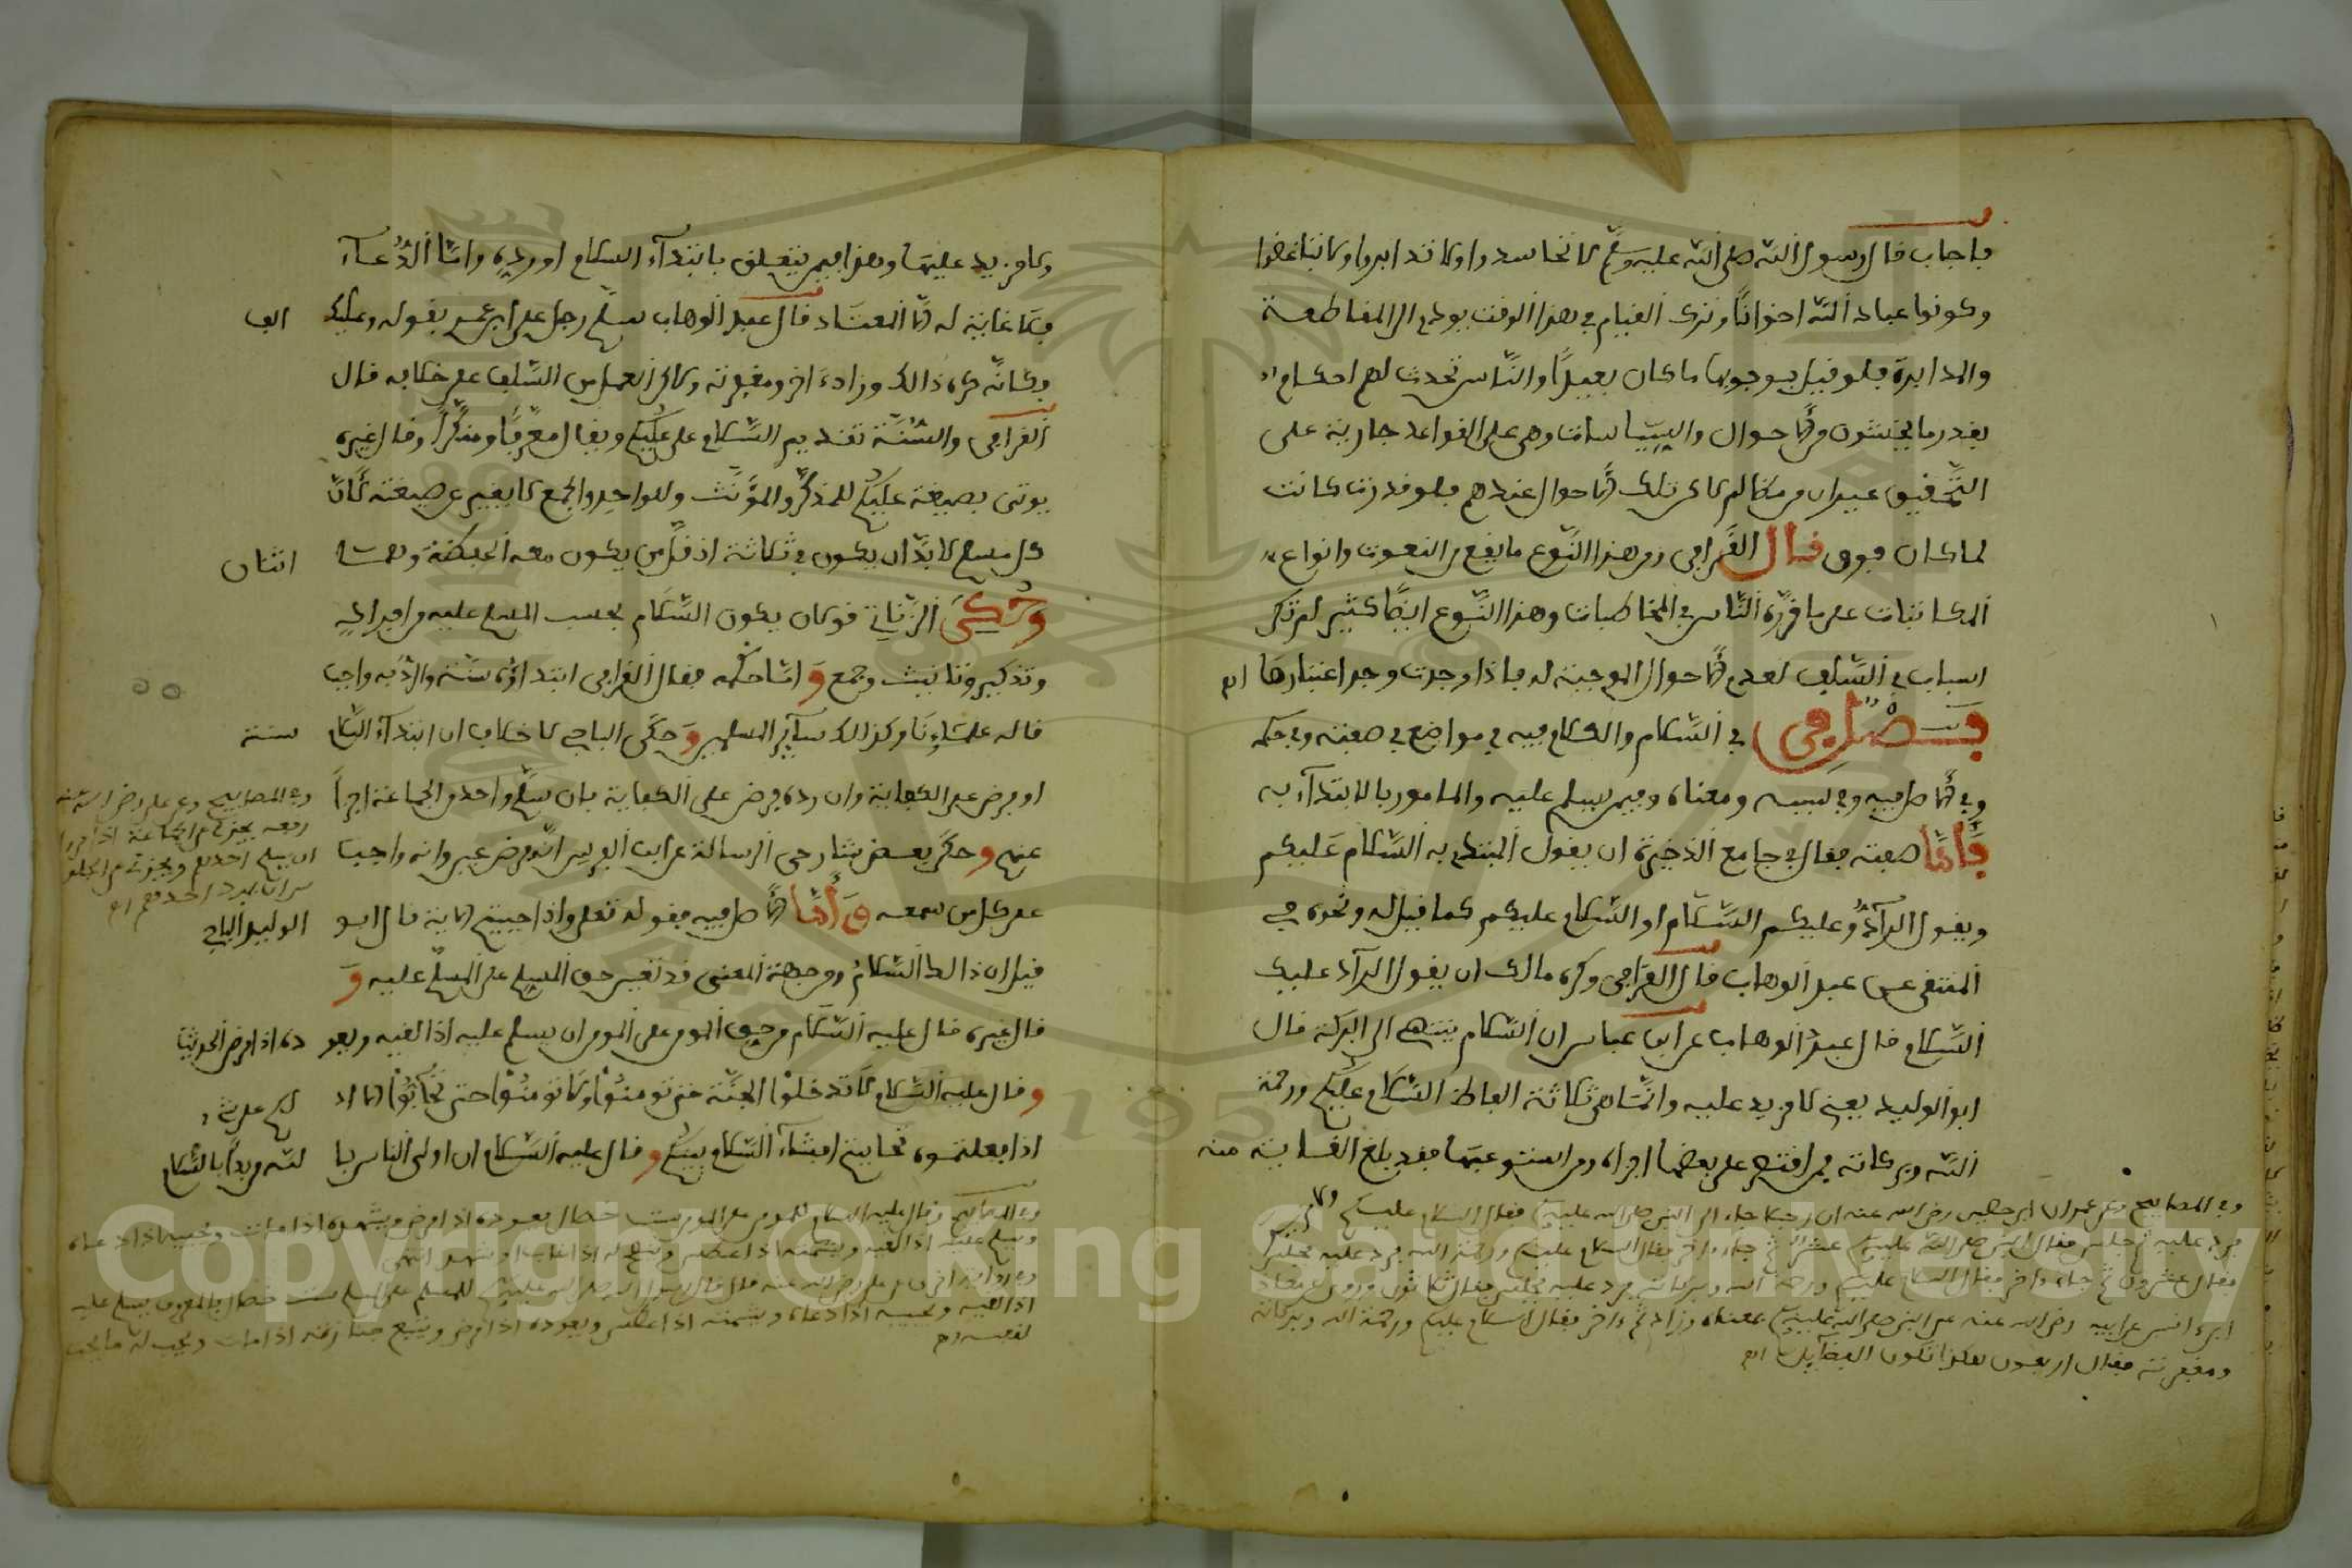 فاجاب قال رسول الله صلى الله عليه وسلم لا تحاسدوا ولا تدابروا ولا تباغضوا
وكونوا عباد الله اخوانا وترك القيام في هذا الوقت يودي الى المقاطعة
والمدابرة فلو قيل بوجوبه ما كان بعيدا والناس تحدث لهم احكام
بقدر ما يحدثون من الاحوال والسياسات وهي على القواعد جارية على
التحقيق غير ان من لم تكن تلك الاحوال عندهم فلو قدرت كانت
لما كان فرق قال القرافي ومن هذا النوع ما يقع من النعوت وانواع
المكاتبات على ما قرره الناس في المخاطبات وهذا النوع ايضا كثير لم تكن
اسبابه في السلف لعدم الاحوال الموجبة له فاذا وجدت وجد اعتبارها اه
فصل في السلام والكلام فيه في مواضع في صفته وفي حكمه
وفي الاصل فيه وفي سببه ومعناه وفيمن يسلم عليه والمامور بالابتداء به
فاما صفته فقال في جامع الذخيرة ان يقول المبتدي به السلام عليكم
ويقول الراد وعليكم السلام او السلام عليكم كما قيل له ونحوه في
المنتقى عن عبد الوهاب قال القرافي وكره مالك ان يقول الراد عليك
السلام قال عبد الوهاب عن ابن عباس ان السلام ينتهي الى البركة قال
ابو الوليد يعني لا يزيد عليه وانما هي ثلاثة الفاظ السلام عليكم ورحمة
الله وبركاته فمن اقتصر على بعضها اجزاه ومن استوعبها فقد بلغ الغاية منه
وفي المصابيح وعن عمران ابن حصين رضي الله عنه ان رجلا جاء الى النبي صلى الله عليه وسلم فقال السلام عليكم
فرد عليه ثم جلس فقال النبي صلى الله عليه وسلم عشر ثم جاء اخر فقال السلام عليكم ورحمة الله فرد عليه فجلس
فقال عشرون ثم جاء اخر فقال السلام عليكم ورحمة الله وبركاته فرد عليه فجلس فقال ثلاثون وروى عن معاذ
ابن انس عن ابيه رضي الله عنه عن النبي صلى الله عليه وسلم بمعناه وزاد ثم اتى اخر فقال السلام عليكم ورحمة الله وبركاته
ومغفرته فقال اربعون هكذا تكون الفضايل اه
ولا يزيد عليها وهذا فيما يتعلق بابتداء السلام او رده واما الدعاء
فلا غاية له الا المعتاد قال عبد الوهاب سلم رجل على ابن عمر بقوله وعليك الف
وكانه كره ذالك وزاد اخر ومغفرته ولاكن العمل من السلف على خلافه قال
القرافي والسنة تقديم السلام على عليكم ويقال معرفا ومنكرا وقال غيره
يوتى بصيغة عليكم للمذكر والمونث وللواحد والجمع لا يغير عن صيغته لان
كل مسلم لا بد ان يكون في ثلاثة اذ قل من يكون معه الحفظة وهما اثنان
وحكى الزناتي قولا ان يكون السلام بحسب المسلم عليه من افراد
وتذكير وتانيث وجمع واما حكمه فقال القرافي ابتداوه سنة والرد به واجب
قاله علماونا وكذالك ساير المسلمين وحكى الباجي لا خلاف ان ابتداء السلام سنة
او فرض على الكفاية وان رده فرض على الكفاية فان سلم واحد من الجماعة اجزا
عنهم وحكى بعض شارحي الرسالة عن ابن العربي انه فرض عين وانه واجب
على كل من سمعه واما الاصل فيه فقوله تعلى واذا حييتم الاية قال ابو الوليد الباجي
قيل ان ذالك السلام ومن جهة المعنى قد تعين حق المسلم على المسلم عليه و
قال غيره قال عليه السلام من حق المومن على المومن ان يسلم عليه اذا لقيه ويعوده اذا مرض الحديث
وقال عليه السلام لا تدخلوا الجنة حتى تومنوا ولا تومنوا حتى تحابوا الا ادلكم على شيء
اذا فعلتموه تحاببتم افشاء السلام بينكم وقال عليه السلام ان اولى الناس بالله من بدا بالسلام
وفي المصابيح وعن علي رضي الله عنه
رفعه يجزي عن الجماعة اذا مروا
ان يسلم احدهم ويجزي عن الجلوس
ان يرد احدهم اه
وفي المصابيح وقال عليه السلام للمومن على المومن ست خصال يعوده اذا مرض ويشهده اذا مات ويجيبه اذا دعاه
ويسلم عليه اذا لقيه ويشمته اذا عطس وينصح له اذا غاب او شهد انتهى
وفي رواية اخرى عن علي رضي الله عنه قال قال رسول الله صلى الله عليه وسلم للمسلم على المسلم ست خصال بالمعروف يسلم عليه
اذا لقيه ويجيبه اذا دعاه ويشمته اذا عطس ويعوده اذا مرض ويتبع جنازته اذا مات ويحب له ما يحب
لنفسه اه
Copyright © King Saud University
1957